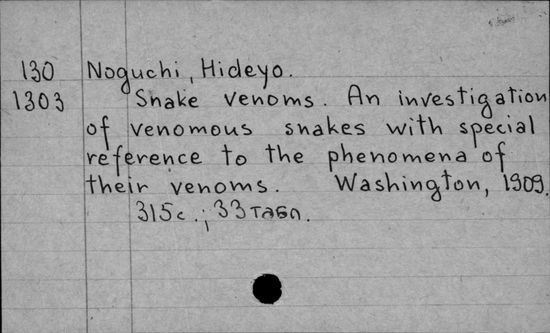 130 Noguchi, Hideyo.
1303 Snake venoms. An investigation
of venomous snakes with special
reference to the phenomena of
their venoms. Washington, 1909.
315с.; 33 табл.